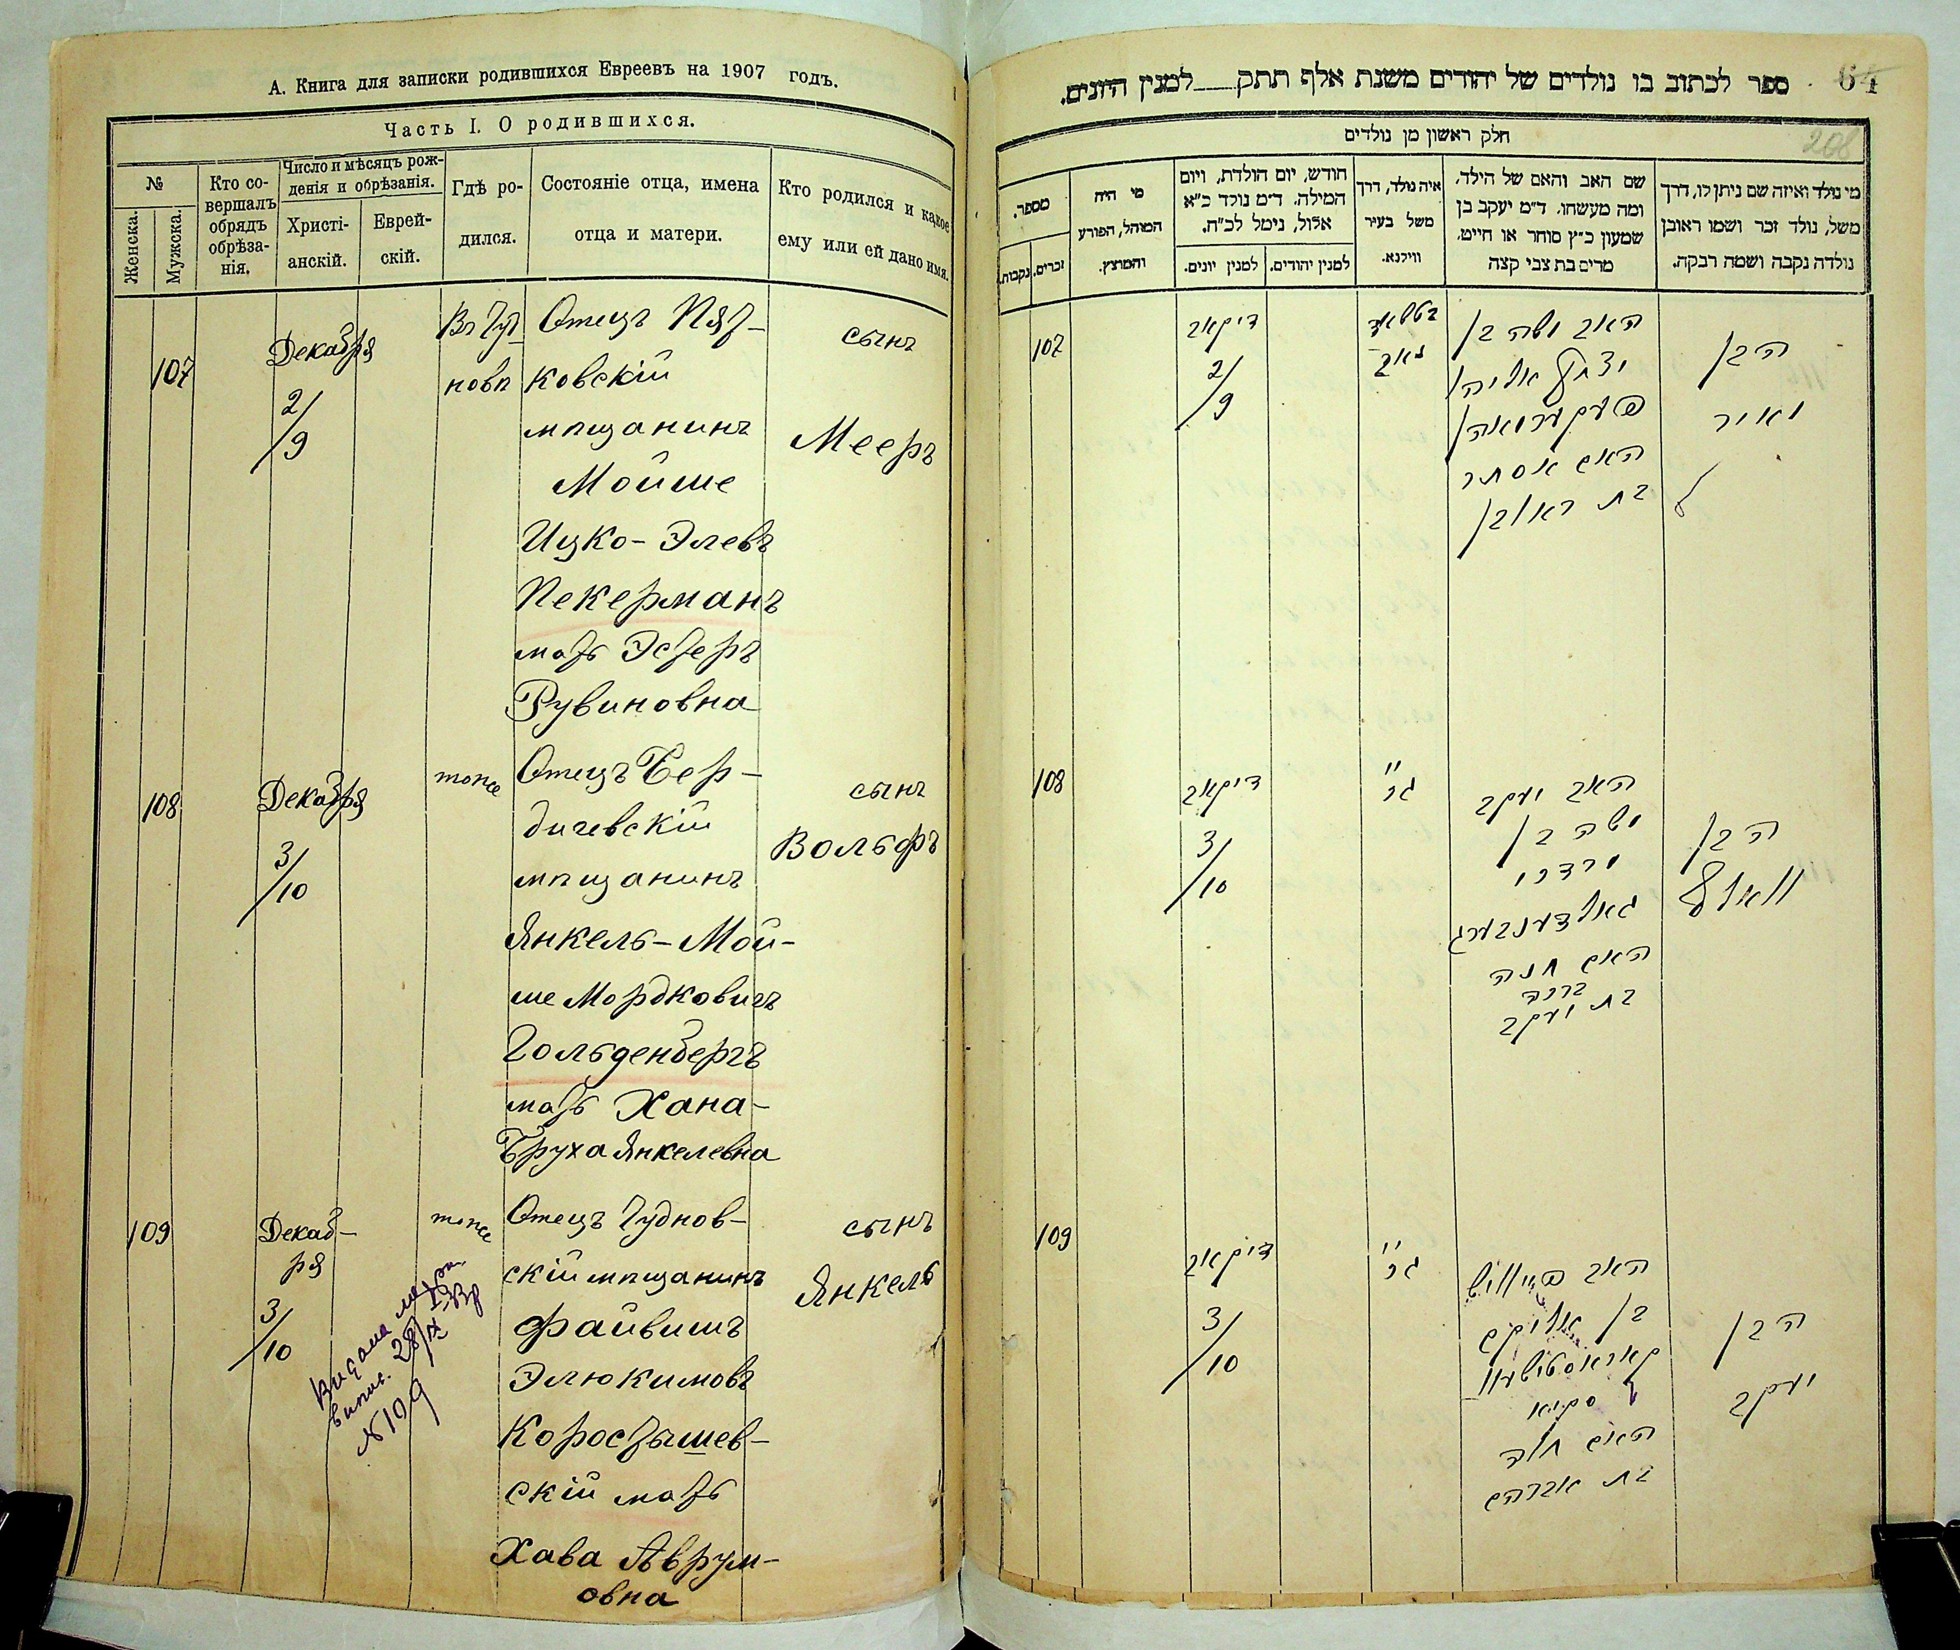 А. Книга для записки родившихся Евреевъ на 1907 годъ.
Часть I. О родившихся.
№
Женска.
Мужска.
Кто со-
вершалъ
обрядъ
обрѣза-
нія.
Число и мѣсяцъ рож-
денія и обрѣзанія.
Христі-
анскій.
Еврей-
скій.
Гдѣ ро-
дился.
Состояніе отца, имена
отца и матери.
Кто родился и какое
ему или ей дано имя.
107
Декабря
2/9
Въ Чуд
новѣ
Отецъ Пят-
ковскій
мѣщанинъ
Мойше
Ицко-Элевъ
Пекерманъ
мать Эстеръ
Рувиновна
сынъ
Мееръ
108
Декабря
3/10
тоже
Отецъ Бер-
дичевскій
мѣщанинъ
Янкель-Мой-
ше Мордковичъ
Гольденбергъ
мать Хана-
Бруха Янкелевна
сынъ
Вольфъ
109
Декаб-
ря
3/10
тоже
Отецъ Чуднов-
скій мѣщанинъ
Файвишъ
Элюкимовъ
Коростышев-
скій мать
Хава Аврум-
овна
сынъ
Янкель
Видана
випис. 28/IX
№ 109
64
ספר לכתוב בו נולדים של יהודים משנת אלף תתק___למנין היונים.
208
חלק ראשון מן נולדים
מי נולד ואיזה שם ניתן לו, דרך
משל, נולד זכר ושמו ראובן
נולדה נקבה ושמה רבקה.
שם האב והאם של הילד,
ומה מעשהו. ד״מ יעקב בן
שמעון כ״ץ סוחר או חייט,
מרים בת צבי קצה
איה נולד, דרך
משל בעיר
ווילנא.
חודש, יום הולדת, ויום
המילה. ד״מ נולד כ״א
אלול, נימל לכ״ח.
למנין יהודים.
למנין יונים.
מי היה
המוהל, הפורע
והמוצץ.
מספר.
זכרים.
נקבות.
107
דיקאב
2/9
האב משה בן
יצחק אליהו
פעקערמאן
האם אסתר
בת ראובן
הבן
מאיר
108
דיקאב
3/10
האב יעקב
משה בן
מרדכי
גאלדענבערג
האם חנה
ברכה
בת יעקב
הבן
וואלף
109
דיקאב
3/10
האב פייוויש
בן אליקים
קאראסטישעוו
סקיא
האם חוה
בת אברהם
הבן
יעקב